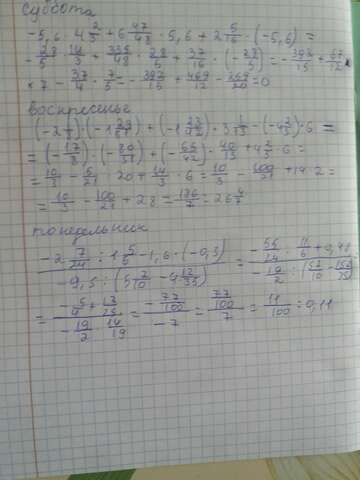 суббота
-5,6 · 4 2/3 + 6 47/48 · 5,6 + 2 5/16 · (-5,6) =
- 28/5 · 14/3 + 335/48 · 28/5 + 37/16 · (- 28/5) = - 392/15 + 67/12 ×
× 7 - 37/4 · 7/5 = - 392/15 + 469/12 - 259/20 = 0
воскресенье
(-2 1/8) · (-1 29/51) + (-1 23/42) · 3 1/13 - (-4 2/3) · 6 =
= (- 17/8) · (- 80/51) + (- 65/42) · 40/13 + 4 2/3 · 6 =
= 10/3 - 5/21 · 20 + 14/3 · 6 = 10/3 - 100/21 + 14 · 2 =
= 10/3 - 100/21 + 28 = 186/7 = 26 4/7
понедельник
-2 7/24 : 1 5/6 - 1,6 · (-0,3) / -9,5 : (5 2/10 - 4 12/35) = - 55/24 : 11/6 + 0,48 / - 19/2 : (52/10 - 152/35)
= - 5/4 + 12/25 / - 19/2 · 14/19 = - 77/100 / -7 = 77/100 / 7 = 11/100 = 0,11